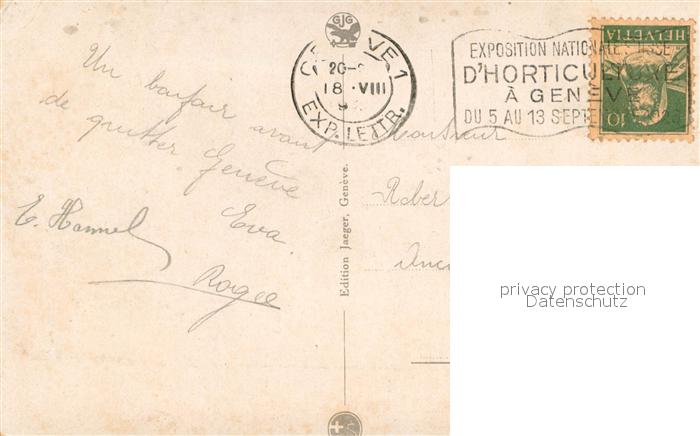 Un bonjour avant
de quitter Genève
Eva
E. Hammel
Roger
GJG
GENÈVE 1
20-
18.VIII
EXP. LETTR.
EXPOSITION NATIONALE SUISSE
D'HORTICULTURE
À GENÈVE
DU 5 AU 13 SEPTE
HELVETIA
10
Edition Jaeger, Genève.
Monsieur
Rober
privacy protection
Datenschutz